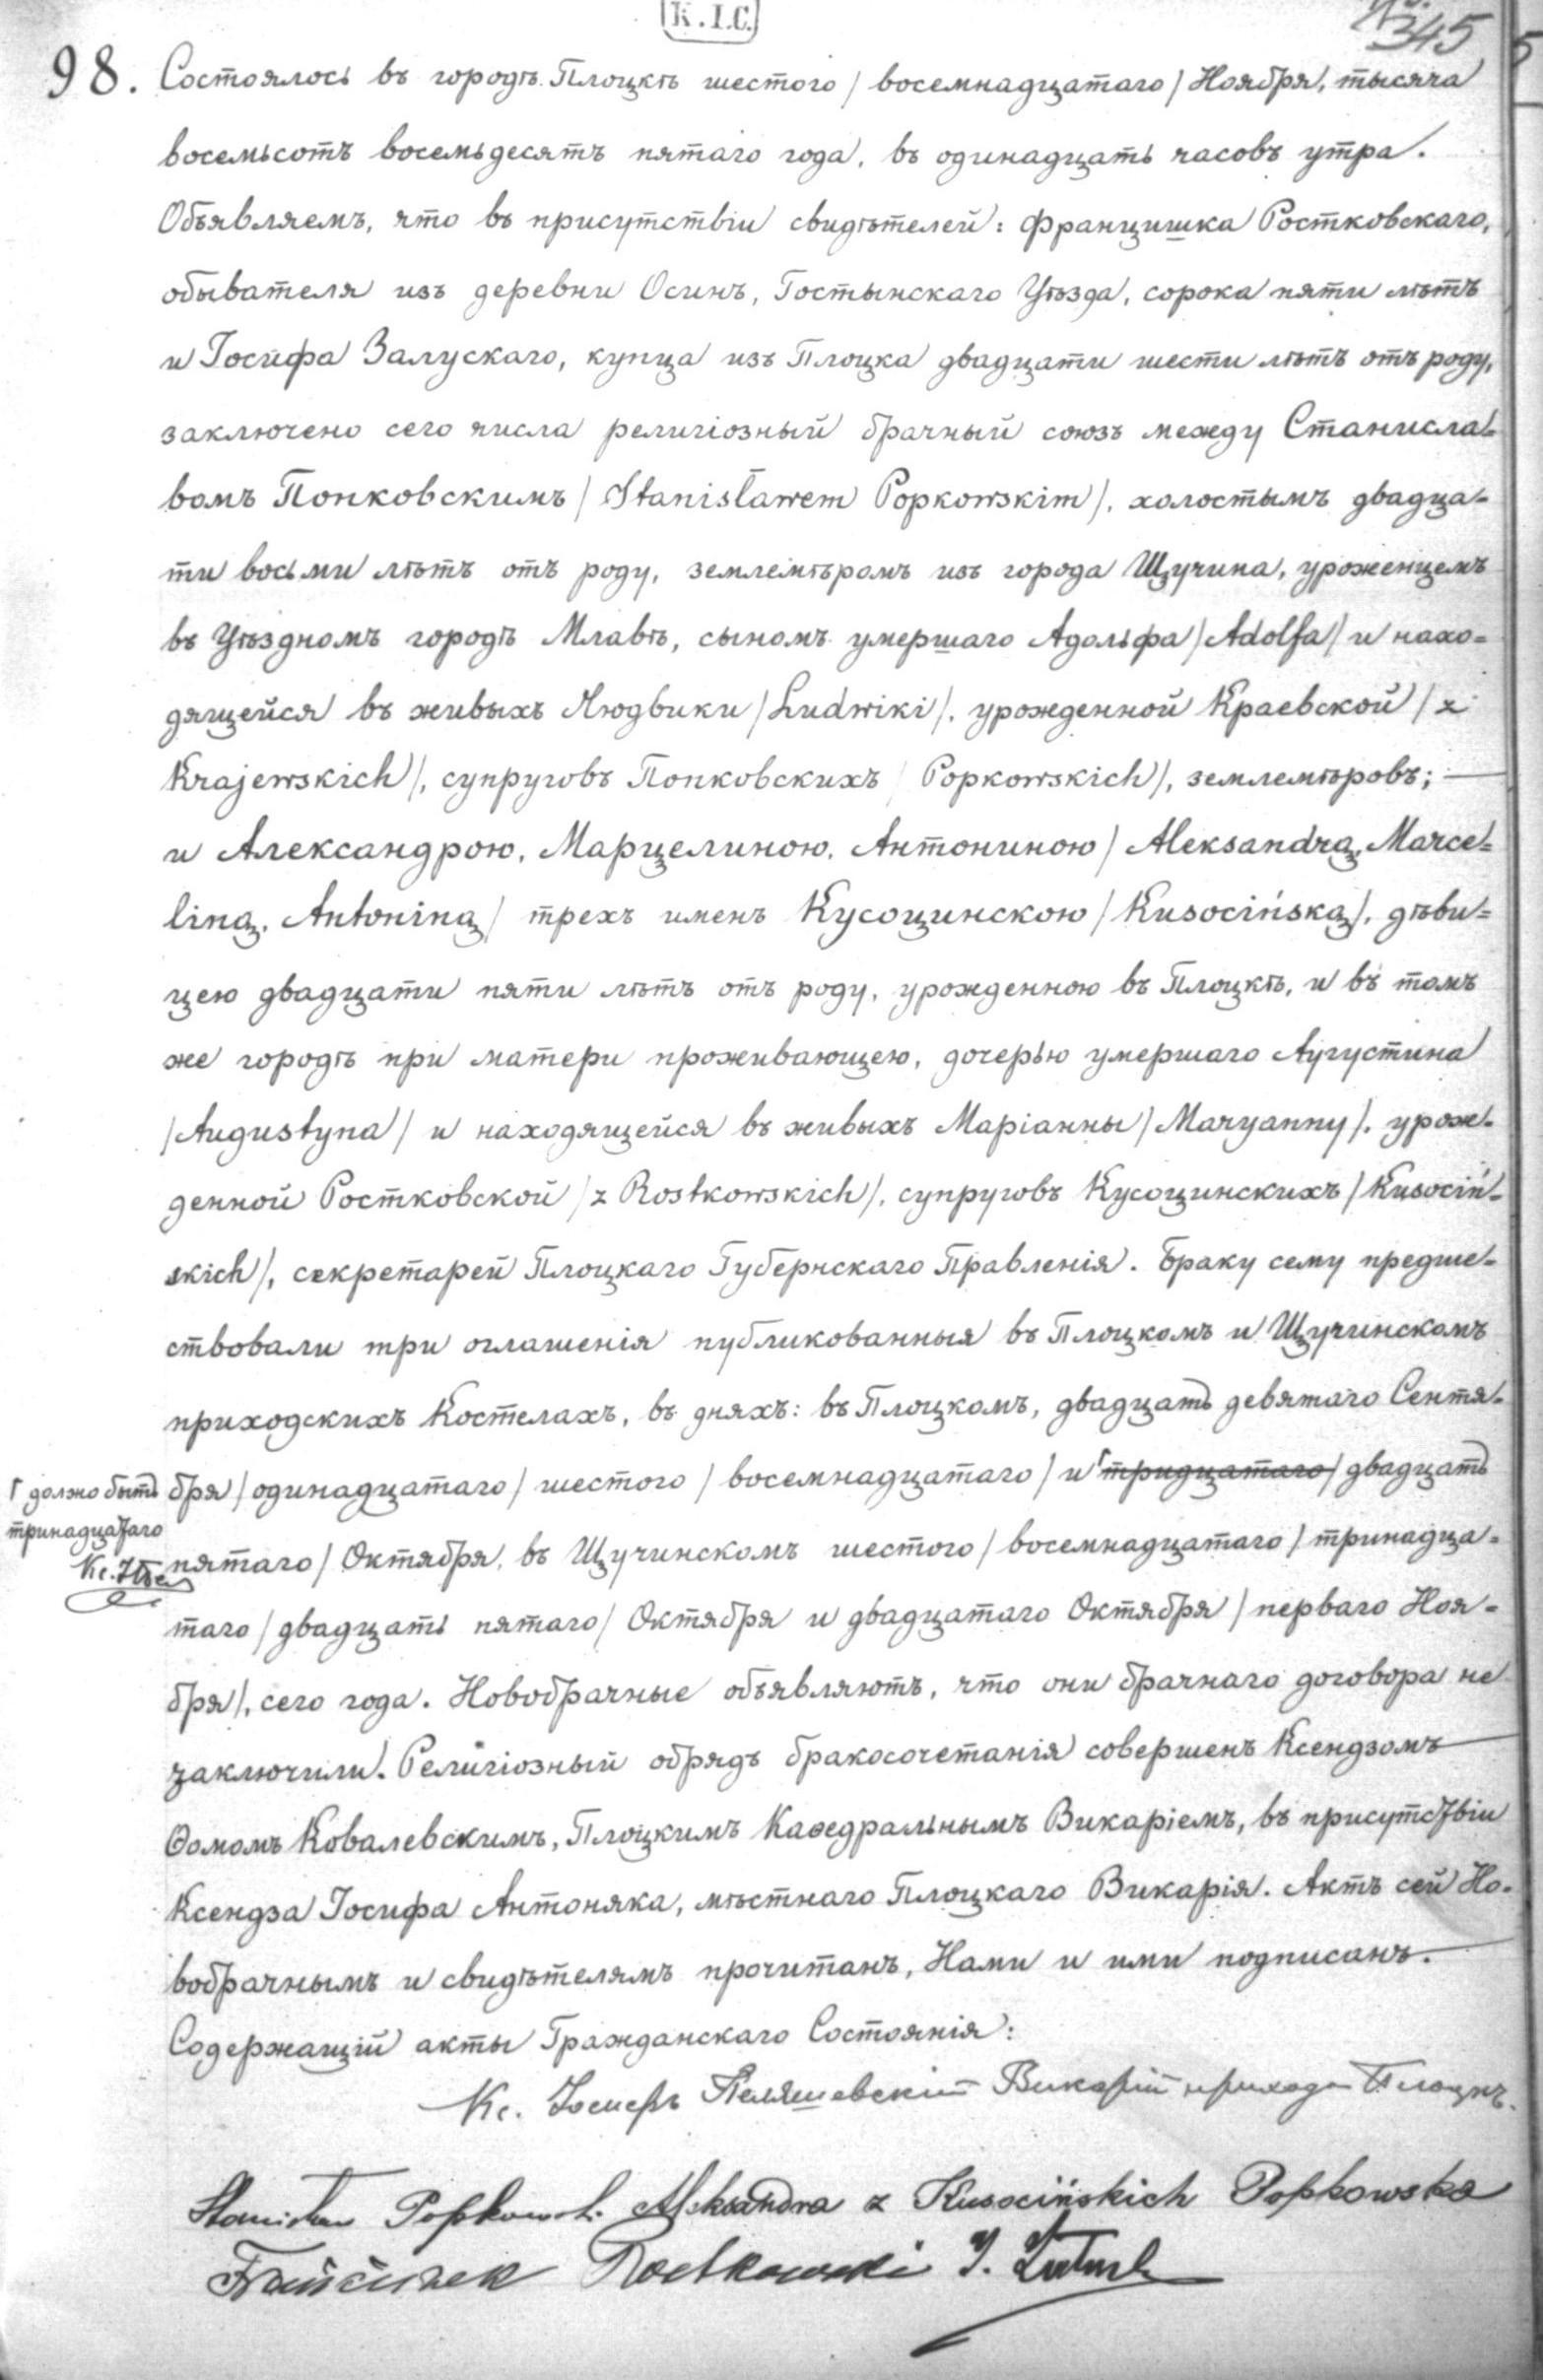 К.І.С.
345
98. Состоялось въ городѣ Плоцкѣ шестого / восемнадцатаго / Ноября, тысяча
восемьсотъ восемьдесятъ пятаго года, въ одинадцать часовъ утра.
Объявляемъ, что въ присутствіи свидѣтелей: Францишка Ростковскаго,
обывателя изъ деревни Осинъ, Гостынскаго Уѣзда, сорока пяти лѣтъ
и Іосифа Залускаго, купца изъ Плоцка двадцати шести лѣтъ отъ роду,
заключено сего числа религіозный брачный союзъ между Станисла-
вомъ Попковскимъ / Stanisławem Popkowskim /, холостымъ двадца-
ти восьми лѣтъ отъ роду, землемѣромъ изъ города Щучина, уроженцемъ
въ Уѣздномъ городѣ Млавѣ, сыномъ умершаго Адольфа / Adolfa / и нахо=
дящейся въ живыхъ Людвики / Ludwiki /, урожденной Краевской / z
Krajewskich /, супруговъ Попковскихъ / Popkowskich /, землемѣровъ;
и Александрою, Марцелиною, Антониною / Aleksandrą, Marce=
liną, Antoniną / трехъ именъ Кусоцинскою / Kusocińską /, дѣви=
цею двадцати пяти лѣтъ отъ роду, урожденною въ Плоцкѣ, и въ томъ
же городѣ при матери проживающею, дочерью умершаго Аугустина
/ Augustyna / и находящейся въ живыхъ Маріанны / Maryanny /, урож-
денной Ростковской / z Rostkowskich /, супруговъ Кусоцинскихъ / Kusociń-
skich /, секретарей Плоцкаго Губернскаго Правленія. Браку сему предше-
ствовали три оглашенія публикованныя въ Плоцкомъ и Щучинскомъ
приходскихъ Костелахъ, въ дняхъ: въ Плоцкомъ, двадцать девятаго Сентя-
бря / одинадцатаго / шестого / восемнадцатаго / и тридцатаго / двадцать
должно быть
тринадцатаго
Кс.
пятаго / Октября, въ Щучинскомъ шестого / восемнадцатаго / тринадца-
таго / двадцать пятаго / Октября и двадцатаго Октября / перваго Ноя-
бря /, сего года. Новобрачные объявляютъ, что они брачнаго договора не
заключили. Религіозный обрядъ бракосочетанія совершенъ Ксендзомъ
Ѳомомъ Ковалевскимъ, Плоцкимъ Каѳедральнымъ Викаріемъ, въ присутствіи
Ксендза Іосифа Антоняка, мѣстнаго Плоцкаго Викарія. Актъ сей Но-
вобрачнымъ и свидѣтелямъ прочитанъ, Нами и ими подписанъ.
Содержащій акты Гражданскаго Состоянія:
Кс. Іосифъ Викарій прихода Плоцкъ.
Stanisław Popkowski Aleksandra z Kusocińskich Popkowska
Franciszek Rostkowski J.